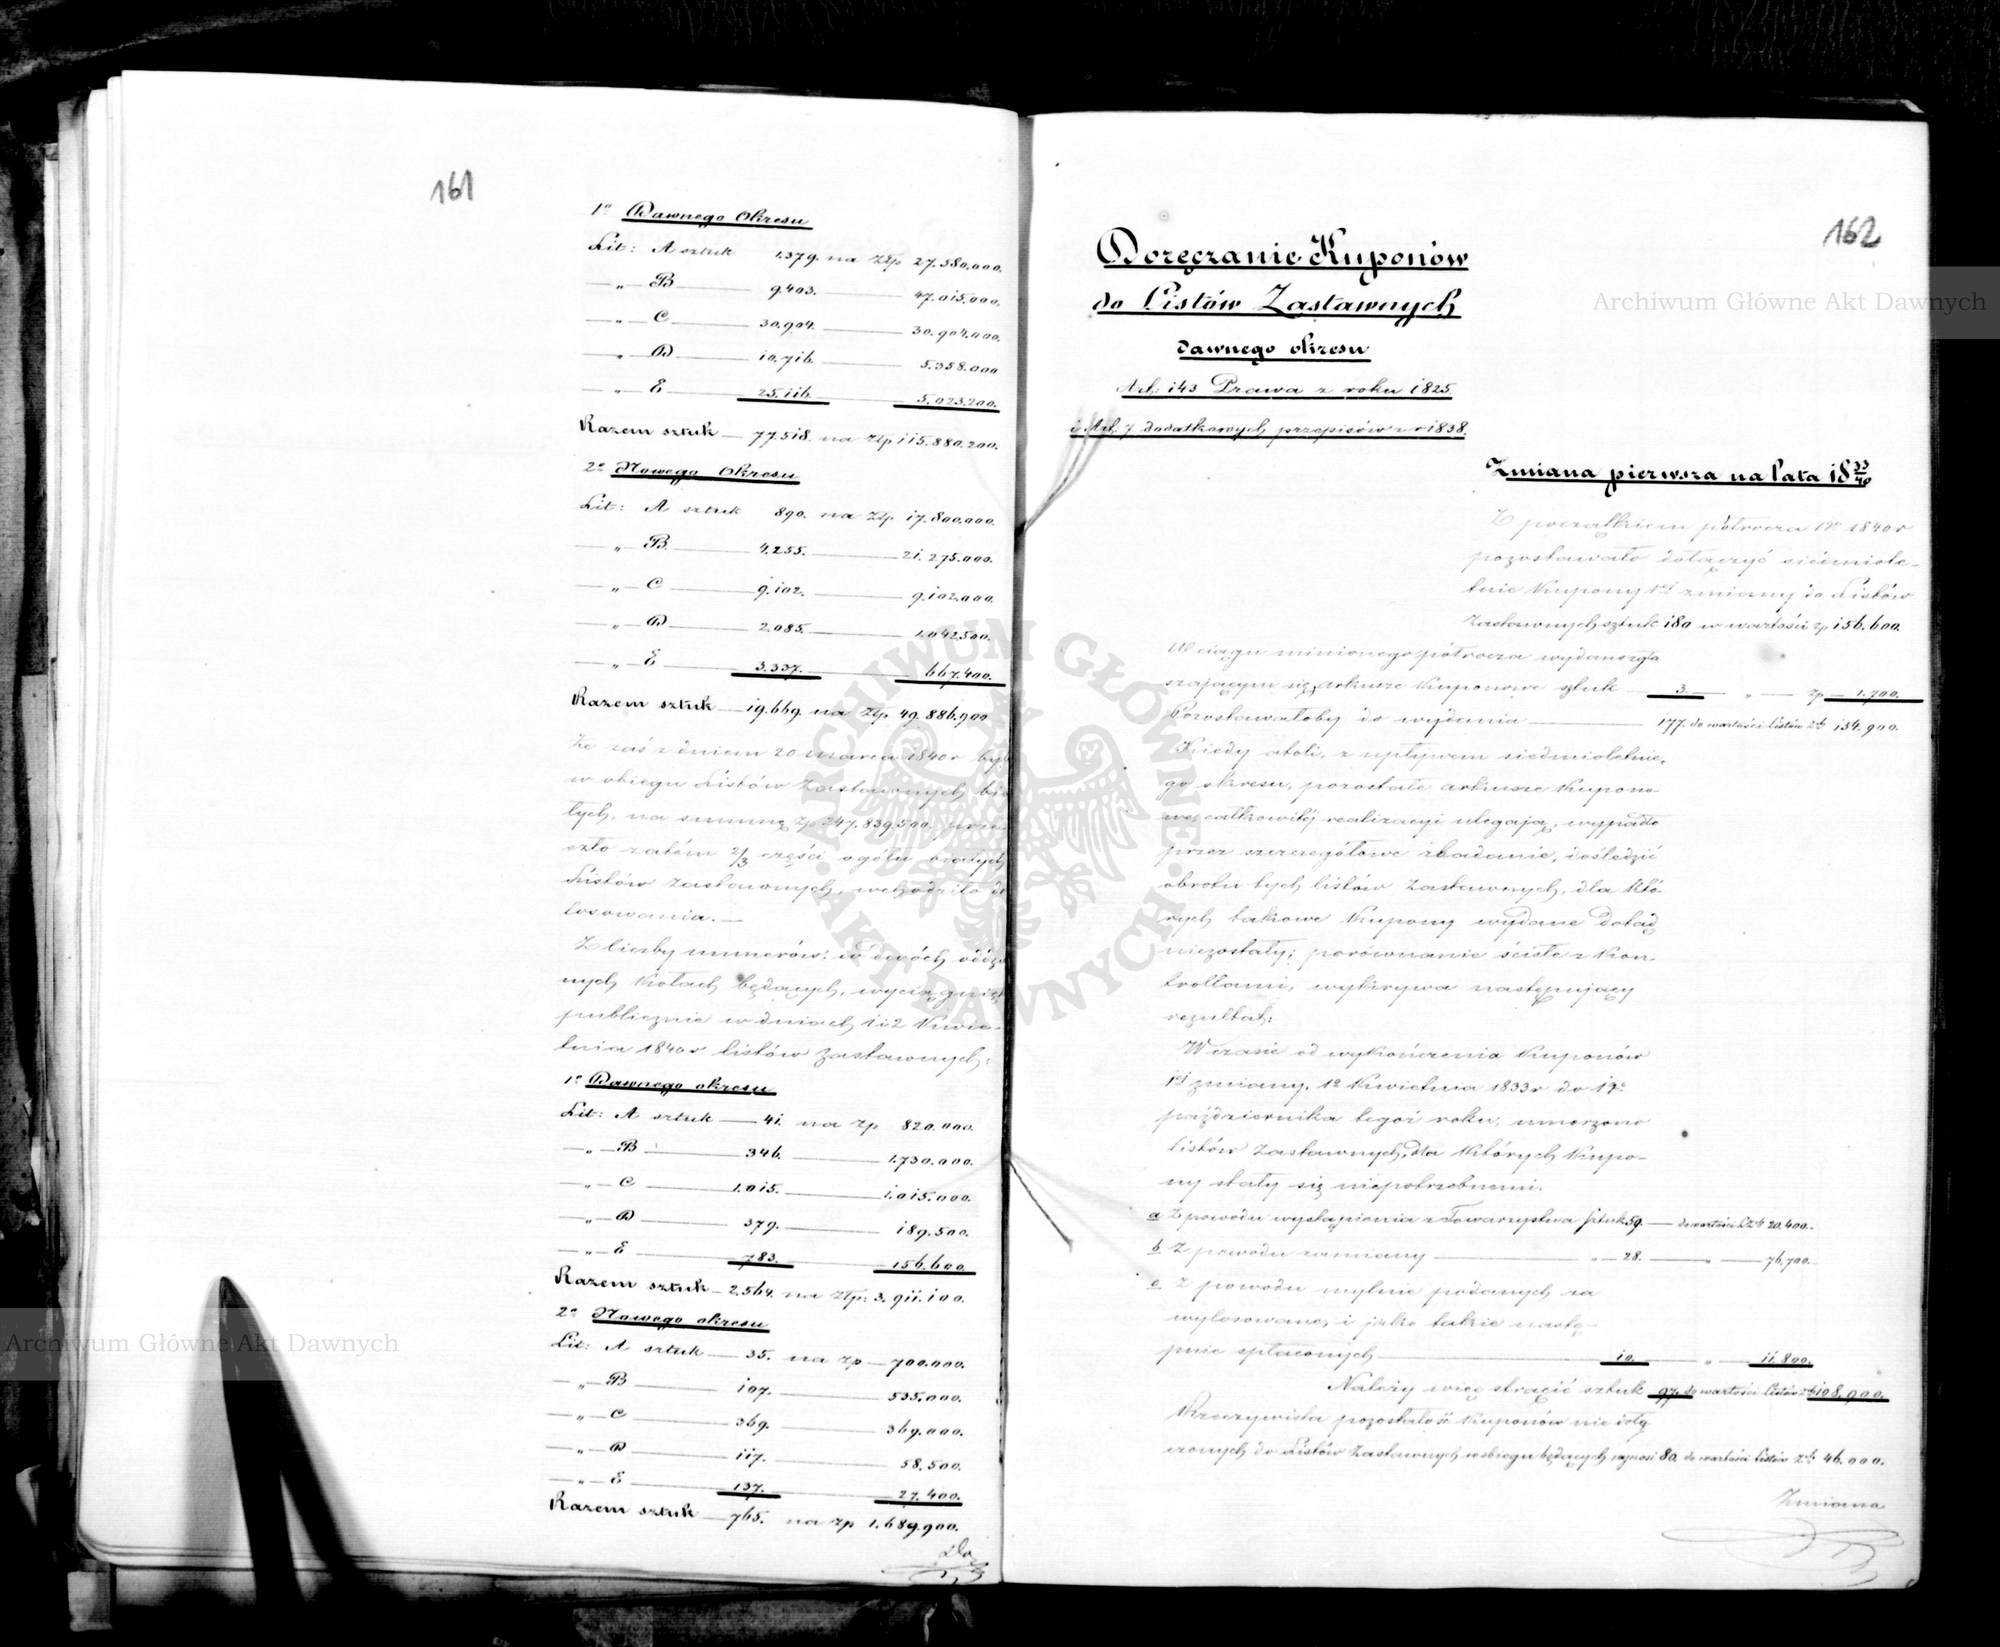 161
1º Dawnego Okresu
Lit: A sztuk 1.379. na Złp 27.580.000.
— „ — B — 9.403. — 47.015.000.
— „ — C — 30.904. — 30.904.000.
— „ — D — 10.716. — 5.358.000
— „ — E — 25.116. — 5.023.200.
Razem sztuk — 77.518. na Złp 115.880.200.
2º Nowego Okresu
Lit: A sztuk 890. na Złp 17.800.000.
— „ — B — 4.255. — 21.275.000.
— „ — C — 9.102. — 9.102.000.
— „ — D — 2.085. — 1.042.500.
— „ — E — 3.337. — 667.400.
Razem sztuk — 19.669. na Złp 49.886.900
Że zaś z dniem 20 marca 1840 r
w obiegu Listów Zastawnych
łych, na summę zp 247.839.500.
szło zatém 2/3 części ogółu białych
Listów Zastawnych, wchodziło
losowania. —
Z liczby numerów: w dwóch
nych Kołach będących,
publicznie w dniach 1 i 2 Kwie-
tnia 1840 r listów zastawnych:
1º Dawnego okresu
Lit: A sztuk — 41. na zp 820.000.
— „ — B — 346. — 1.730.000.
— „ — C — 1.015. — 1.015.000.
— „ — D — 379. — 189.500.
— „ — E — 783. — 156.600.
Razem sztuk — 2.564. na Złp: 3.911.100.
2º Nowego okresu
Lit: A sztuk — 35. na zp — 700.000.
— „ — B — 107. — 535.000.
— „ — C — 369. — 369.000.
— „ — D — 117. — 58.500.
— „ — E — 137. — 27.400.
Razem sztuk — 765. na zp 1.689.900.
Do
162
Doręczanie Kuponów
do Listów Zastawnych
dawnego okresu
Art: 143 Prawa z roku 1825
i Art. 7 dodatkowych przepisów z r 1838.
Zmiana pierwsza na lata 18 33/40
Z początkiem półrocza 1º 1840 r
pozostawało dołączyć siedmiole-
tnie Kupony 1éj zmiany do Listów
Zastawnych sztuk 180 w wartości zp 156.600.
W ciągu minionego półrocza wydano zgła
szającym się, arkusze Kuponowe sztuk — 3. — „ — zp — 1.700.
Pozostawałoby do wydania — 177. do wartości listów zł 154.900.
Kiedy atoli, z upływem siedmioletnie-
go okresu, pozostałe arkusze Kupono-
we, całkowitéj realizacyi ulegają, wypadło
przez szczegółowe zbadanie, dośledzić
obrotu tych listów Zastawnych, dla któ-
rych takowe Kupony wydane dotąd
niezostały; porównanie ściśle z Kon-
trollami, wykrywa następujący
rezultat:
W czasie od wykończenia Kuponów
1éj zmiany, 1º Kwietnia 1833 r do 1go
października tegoż roku, umorzono
listów Zastawnych, dla których Kupo-
ny stały się niepotrzebnemi.
a Z powodu wystąpienia z Towarzystwa sztuk 59. — do wartości L. Z. zł 20.400.
b Z powodu zamiany — „ — 28. — „ — 76,700.
c Z powodu mylnie podanych za
wylosowane, i jako takie nastę-
pnie spłaconych — 10. — „ — 11.800.
Należy więc strącić sztuk 97. do wartości listów zł 108.900.
Rzeczywista pozostałość Kuponów nie dołą
czonych do Listów Zastawnych w obiegu będących wynosi 80. do wartości listów zł 46.000.
Zmiana
Archiwum Główne Akt Dawnych
Archiwum Główne Akt Dawnych
ARCHIWUM GŁÓWNE AKT DAWNYCH